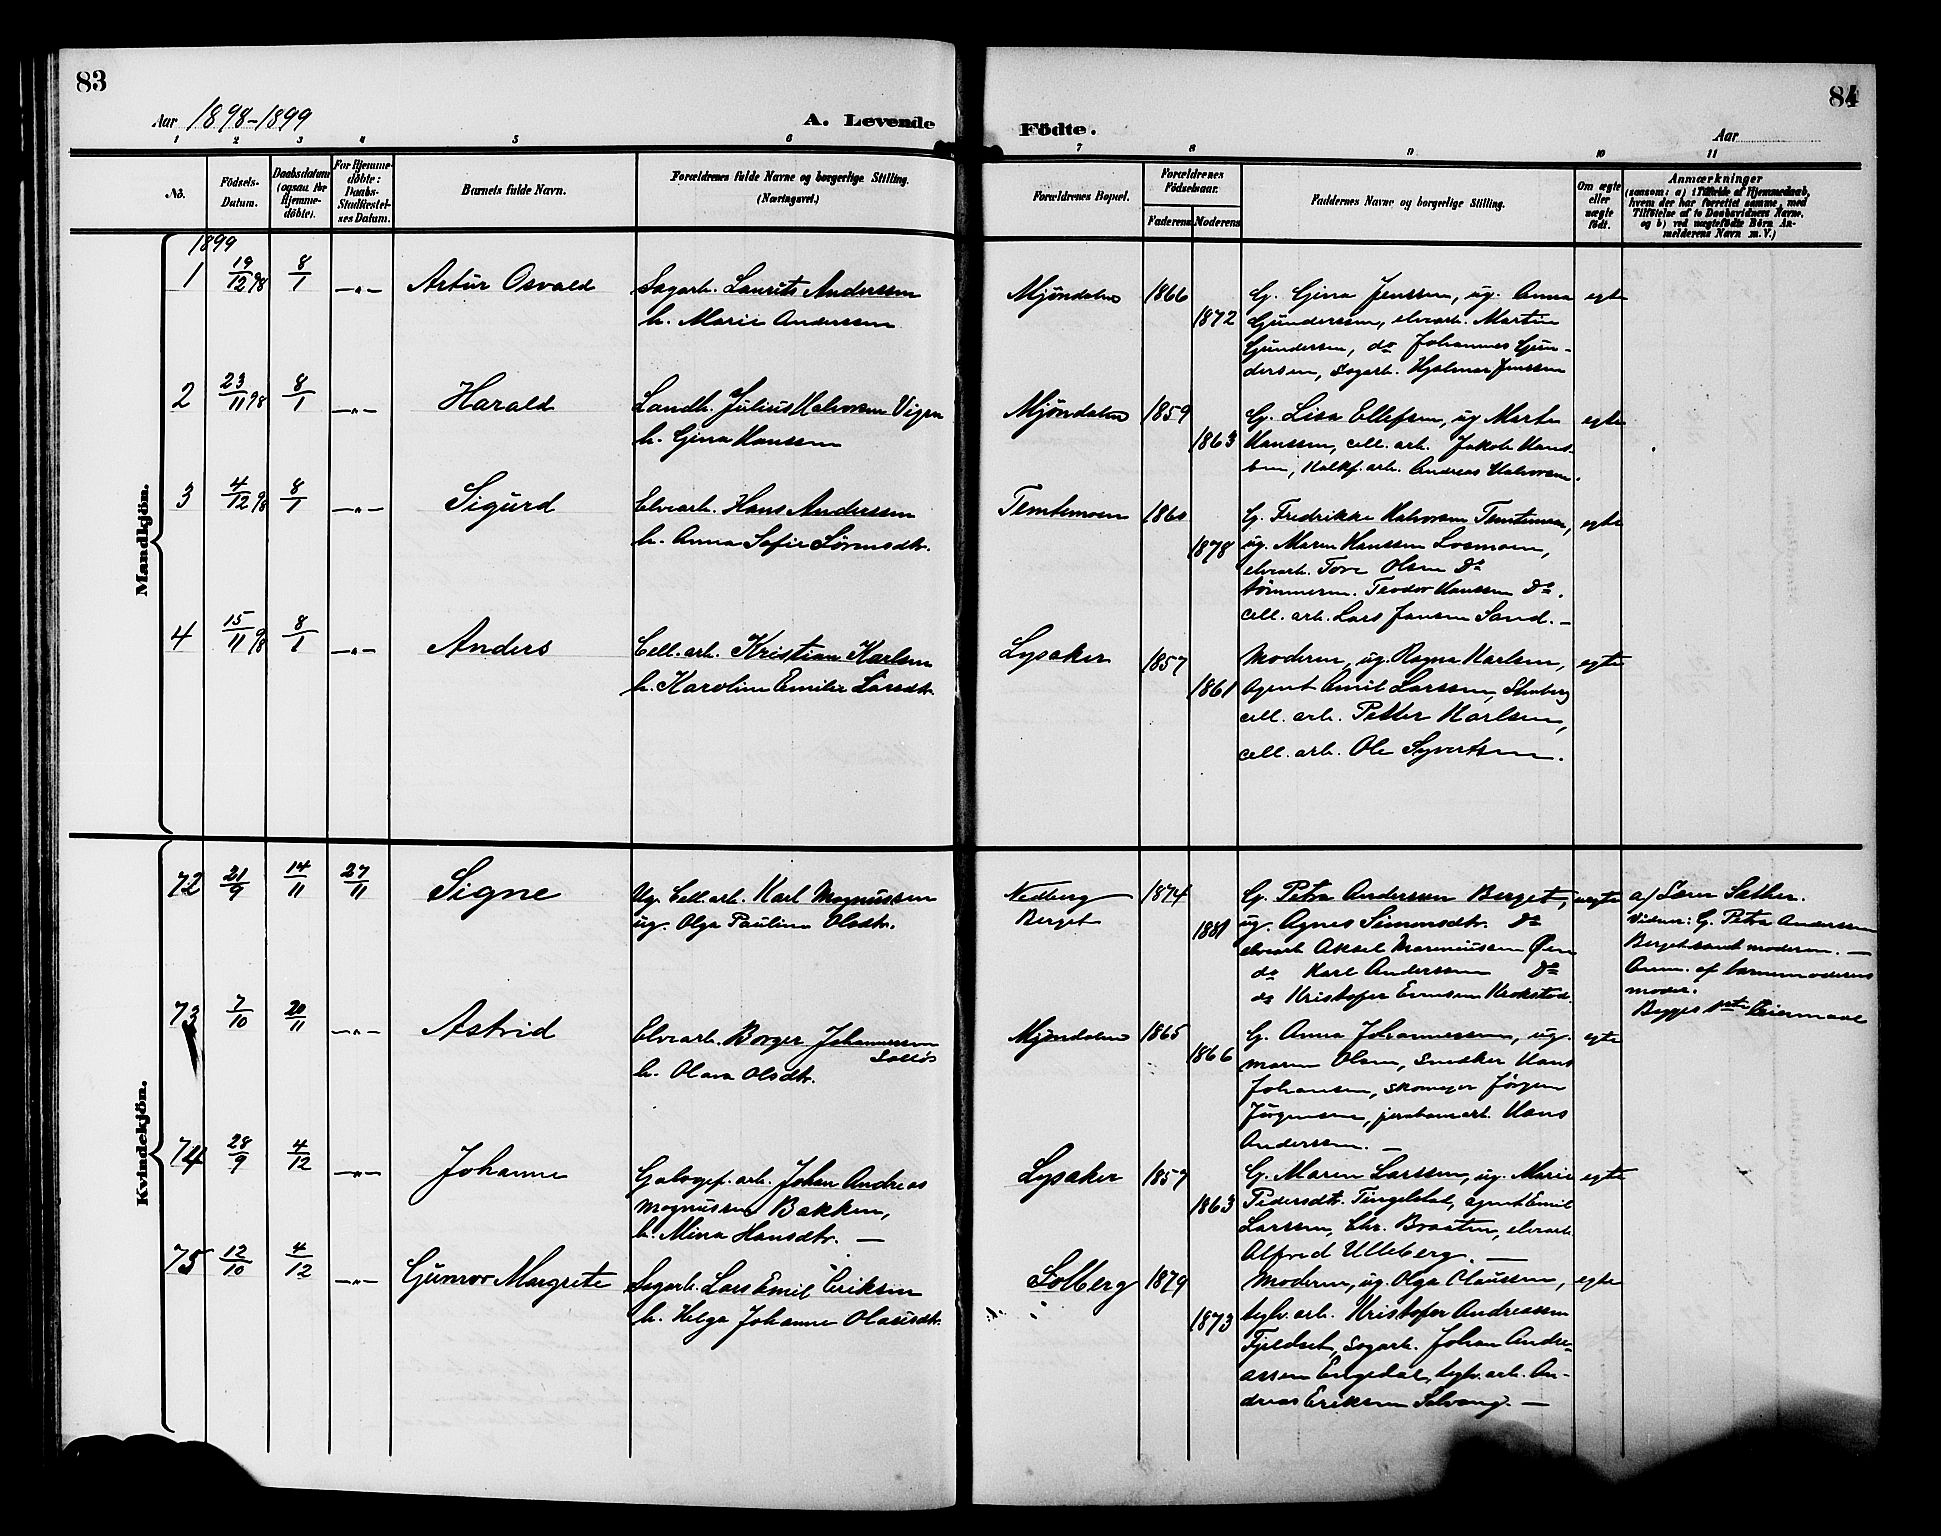 83
84
Aar 1898-1899
A. Levende
Födte.
Aar
1 2 3 4 5 6 7 8 9 10 11
No.
Födsels-
Datum.
Daabsdatum
(ogsaa for
Hjemme-
döbte).
For Hjemme-
döbte:
Daabs-
Stadfæstel-
ses Datum.
Barnets fulde Navn.
Forældrenes fulde Navne og borgerlige Stilling.
(Næringsvei.)
Forældrenes Bopæl.
Forældrenes
Födselsaar.
Faderens Moderens
Faddernes Navne og borgerlige Stilling.
Om ægte
eller
uægte
födt.
Anmærkninger
(saasom: a) i Tilfælde af Hjemmedaab,
hvem der har forrettet samme, med
Tilföielse af to Daabsvidners Navne,
og b) ved uægtefödte Börn An-
melderens Navn m. V.)
Mandkjön.
1899
1 19/12 98 8/1 -"- Artur Osvald
Sagarb. Laurits Anderssen
h. Marie Anderssen
Mjöndalen 1866
1872
G. Gina Jenssen, ug. Anna
Gunderssen, elvearb. Martin
Gundersen, do Johannes Gun-
dersen, Sagarb. Hjalmar Jenssen
egte
2 23/11 98 8/1 -"- Harald
Landh. Julius Halvorsen Vigen
h. Gina Hanssen
Mjöndalen 1859
1863
G. Lisa Ellefsen, ug Marte
Hanssen, cell. arb. Jakob Hans-
sen, Kalkf. arb. Andreas Halvorsen.
egte
3 4/12 98 8/1 -"- Sigurd
Elvearb. Hans Anderssen
h. Anna Sofie Sörensdtr.
Temtemoen
1878
G. Fredrikke Halvorsen Temtemoen,
ug. Maren Hanssen Losmoen,
elvearb. Tore Olsen Do
tömmerm. Teodor Hanssen Do.
cell. arb. Lars Jansen Sand. -
egte
4 15/11 98 8/1 -"- Anders
Cell. arb. Kristian Karlsen
h. Karoline Emilie Larsdtr.
Lysaker 1857
1861
Moderen, ug. Ragna Karlsen,
Agent Emil Larssen, Stenberg
cell. arb. Petter Karlsen,
cell. arb. Ole Syvertsen.
egte
Kvindekjön.
72 21/9 14/11 27/11 Signe
Ug. Cell. arb. Karl Magnussen
ug. Olga Pauline Olsdtr.
Nedberg
Berget
1874
1881
G. Petra Anderssen Berget,
ug. Agnes Simonsdtr. Do
elvearb Aksel Marinussen Öen
do Karl Anderssen Do
do Kristofer Evensen Krokstad.
uegte
a/ Sören Sæther.
Vidner: G. Petra Anderssen
Berget samt moderen. -
Anm. af barnemoderens
moder.
Begges 1ste Leiermaal
73 7/10 20/11 -"- Astrid
Elvearb. Borger Johannessen
h. Olava Olsdtr.
Mjöndalen 1865
1866
G. Anna Johannessen, ug.
Maren Olsen, Snedker Hans
Johansen, skomager Jörgen
Jörgensen, jernbanearb. Hans
Anderssen. -
egte
74 28/9 4/12 -"- Johanne
Galogef. arb. Johan Andreas
Magnussen Bakken,
h. Mina Hansdtr. -
Lysaker 1857
1863
G. Maren Larssen, ug. Marie
Pedersdtr. Tingelstad, agent Emil
Larssen, Chr. Braaten, elvearb.
Alfred Ulleberg. -
egte
75 12/10 4/12 -"- Gunvor Margrete
Sagarb. Lars Emil Eriksen
h. Helga Johanne Olausdtr.
Solberg 1879
1873
Moderen, ug. Olga Olaussen,
teglv. arb. Kristofer Andreassen
Fjeldset, Sagarb. Johan Andre-
assen Engedal, teglv. arb. An-
dreas Eriksen Solvang. -
egte